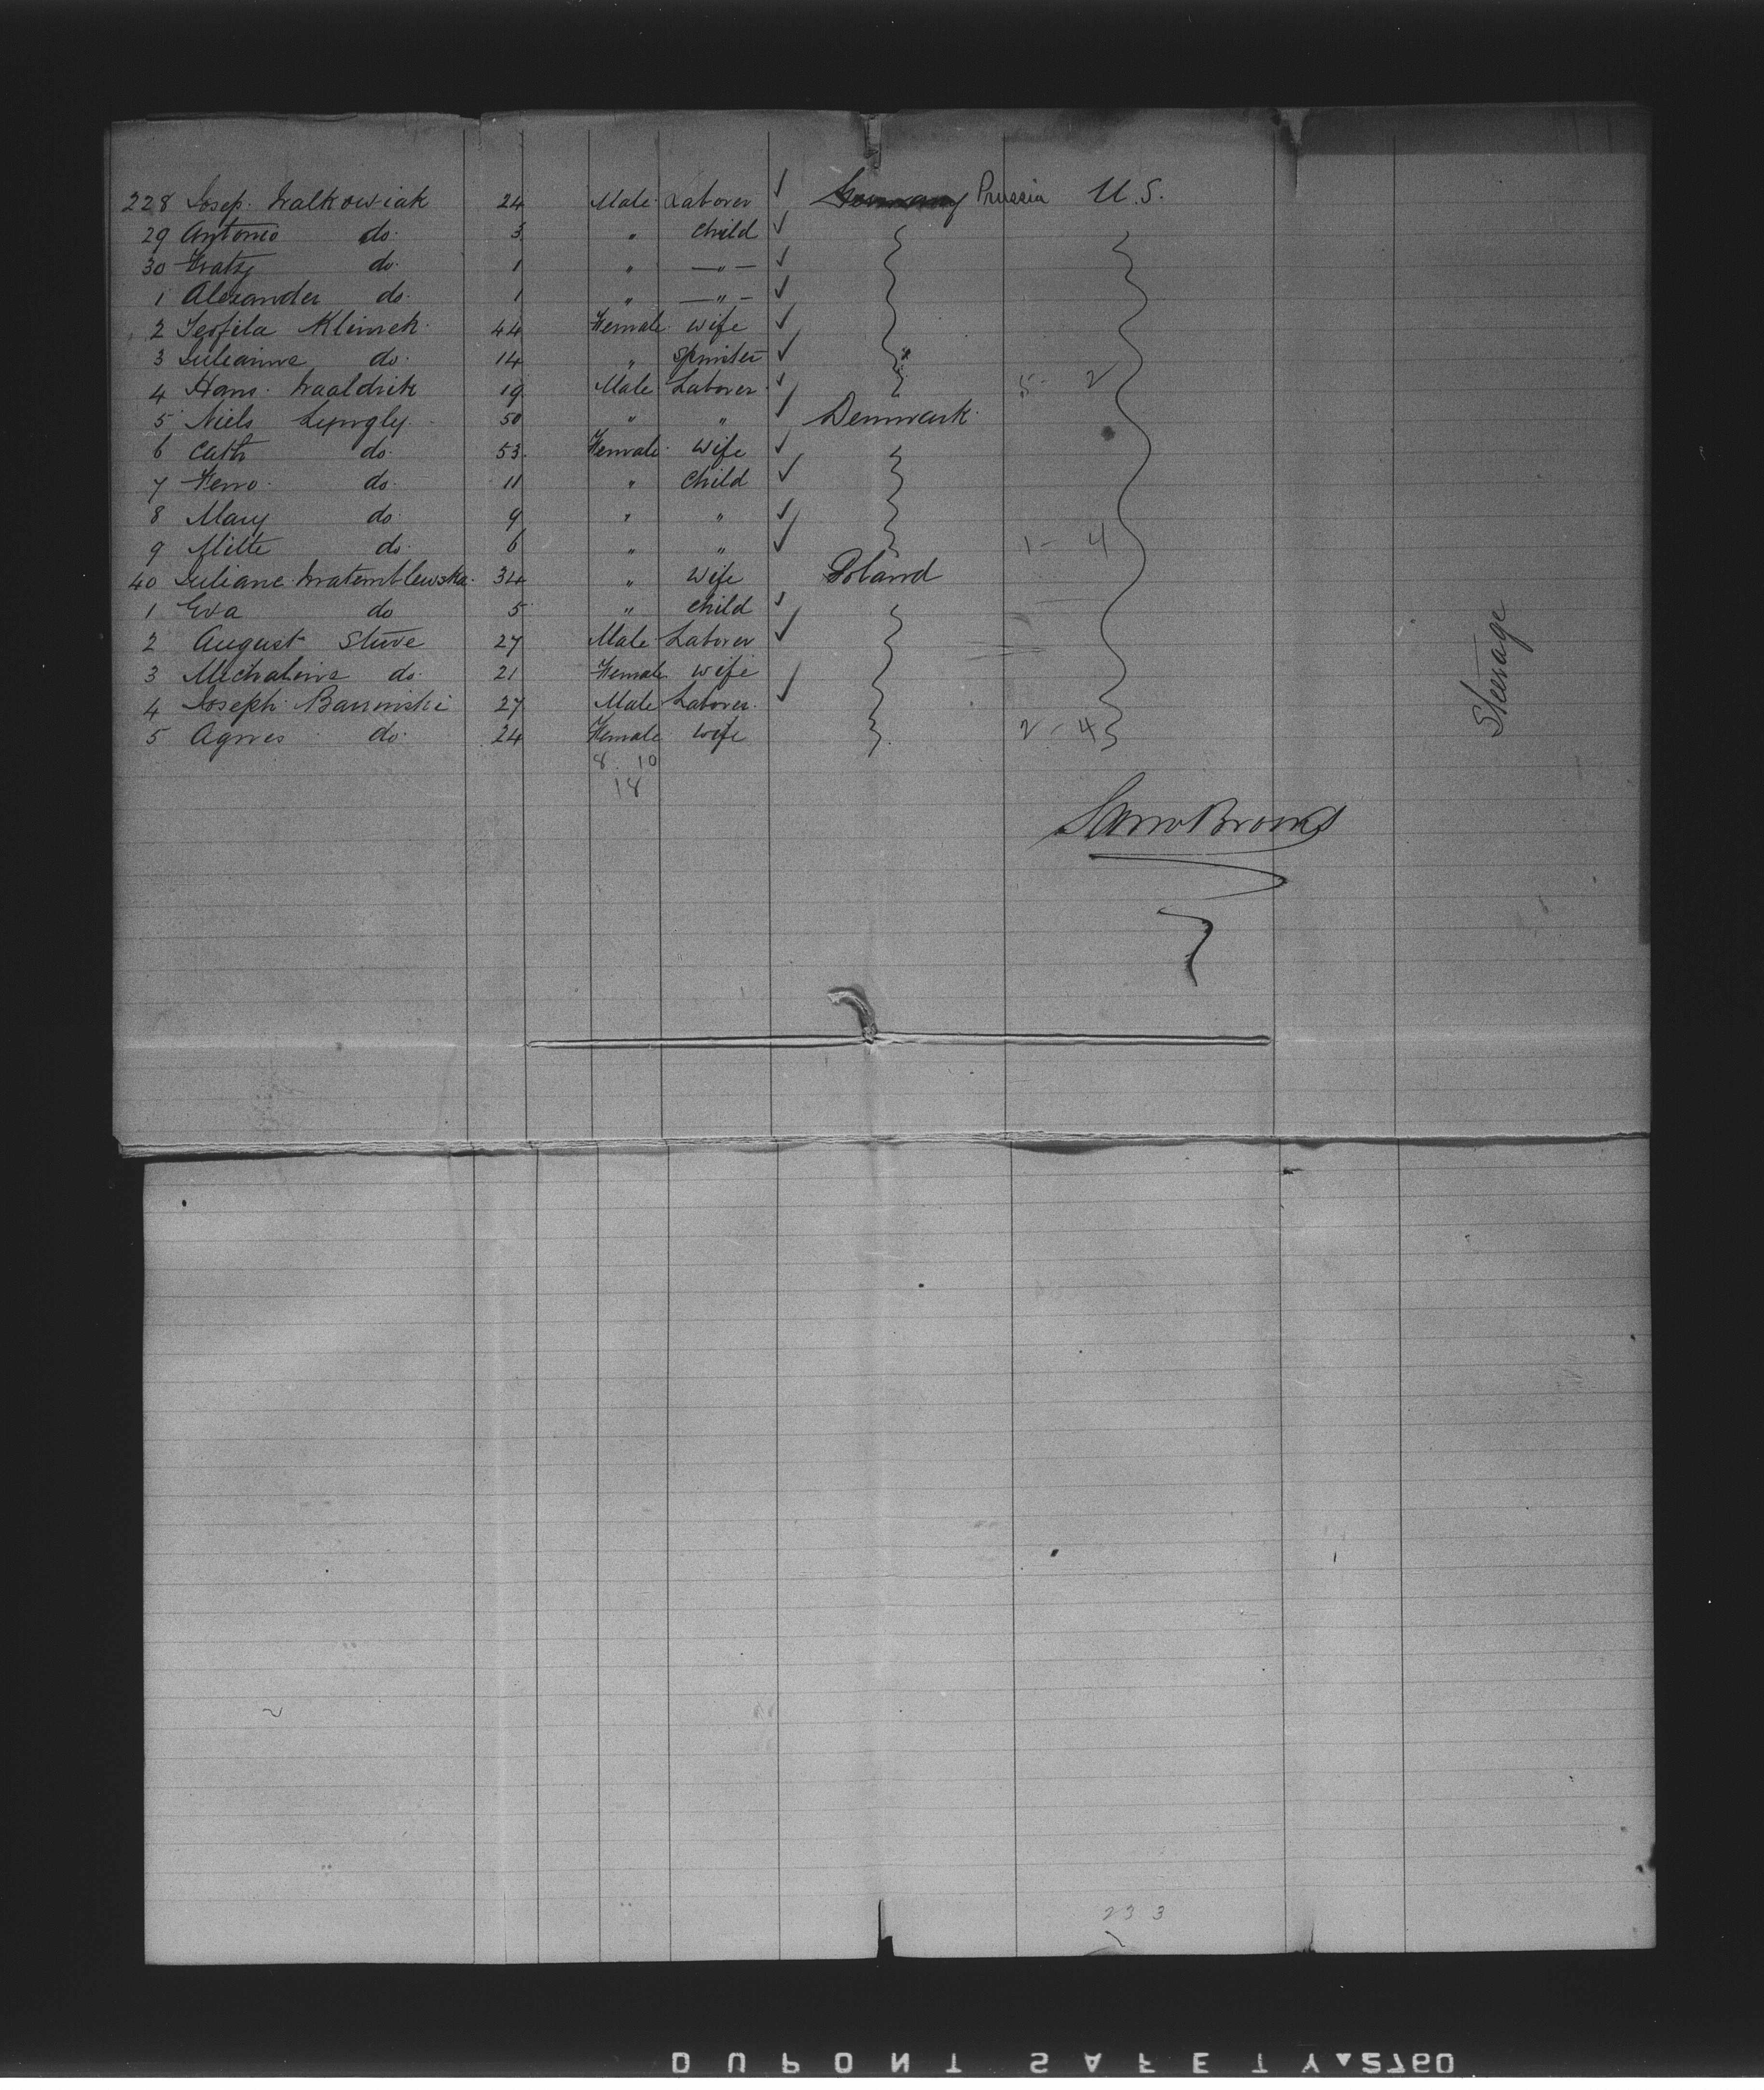 228 Josep. Walkowiak 24 Male Laborer ✓ Germany Prussia U.S.
29 Antonio do. 3 " Child ✓
30 Fratz do. 1 " —"— ✓
1 Alexander do. 1 " —"— ✓
2 Teofila Klimek. 44 Female wife ✓
3 Julianne do. 14 " Spinster ✓
4 Hans. Waaldrik 19 Male Laborer. ✓ 5 - 2
5 Niels Lyngly. 50 " " ✓ Denmark.
6 Cath do. 53. Female. Wife ✓
7 Ferro. do. 11 " Child ✓
8 Mary do 9 " " ✓
9 Mitte do. 6 " " ✓ 1 - 4
40 Juliane Wratemblewska. 34 " Wife Poland
1 Eva do 5 " Child ✓
2 August Stuve 27 Male Laborer ✓
3 Michaline do. 21 Female wife
4 Joseph Barminski 27 Male Laborer. ✓
5 Agnes do. 24 Female wife 2 - 4
8. 10
18
Steerage
233
DUPONT SAFETY▲2760